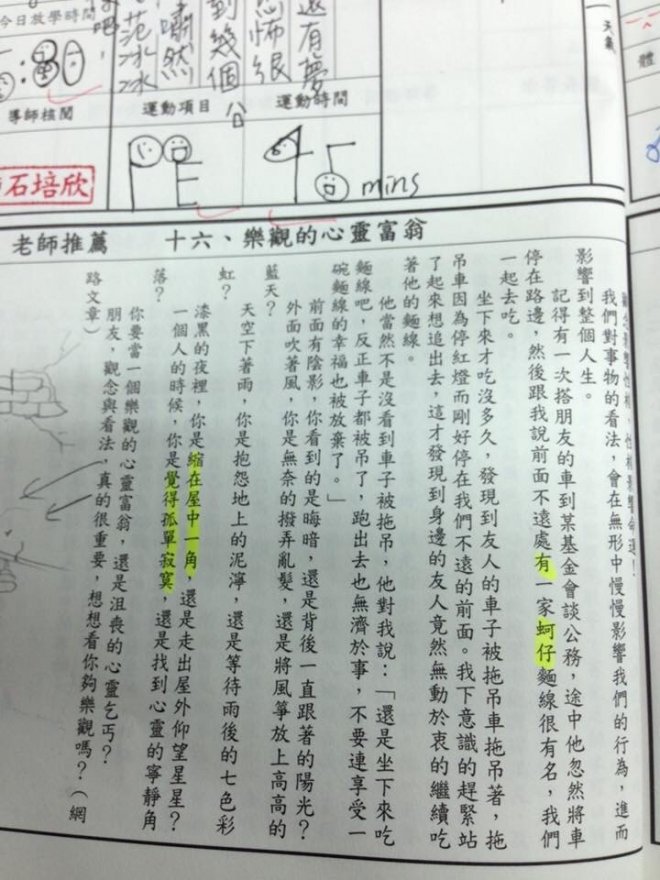 天氣
體
還有夢
恐怖很
到幾個
今日放學時間
:30
導師核閱
運動項目
運動時間
石培欣
PE
45
mins
老師推薦
十六、樂觀的心靈富翁
觀念影響性格,性格影響命運!
我們對事物的看法,會在無形中慢慢影響我們的行為,進而
影響到整個人生。
記得有一次搭朋友的車到某基金會談公務,途中他忽然將車
停在路邊,然後跟我說前面不遠處有一家蚵仔麵線很有名,我們
一起去吃。
坐下來才吃沒多久,發現到友人的車子被拖吊車拖吊著,拖
吊車因為停紅燈而剛好停在我們不遠的前面。我下意識的趕緊站
了起來想追出去,這才發現到身邊的友人竟然無動於衷的繼續吃
著他的麵線。
他當然不是沒看到車子被拖吊,他對我說:「還是坐下來吃
麵線吧,反正車子都被吊了,跑出去也無濟於事,不要連享受一
碗麵線的幸福也被放棄了。」
前面有陰影,你看到的是晦暗,還是背後一直跟著的陽光?
外面吹著風,你是無奈的撥弄亂髮,還是將風箏放上高高的
藍天?
天空下著雨,你是抱怨地上的泥濘,還是等待雨後的七色彩
虹?
漆黑的夜裡,你是縮在屋中一角,還是走出屋外仰望星星?
一個人的時候,你是覺得孤單寂寞,還是找到心靈的寧靜角
落?
你要當一個樂觀的心靈富翁,還是沮喪的心靈乞丐?
朋友,觀念與看法,真的很重要,想想看你夠樂觀嗎?(網
路文章)